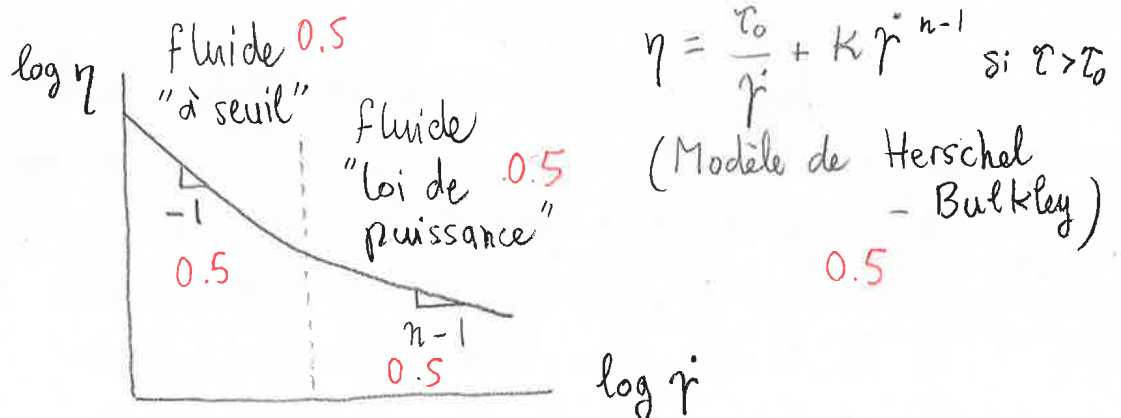 log η
fluide 0.5
"à seuil"
-1
0.5
fluide
"loi de 0.5
puissance"
n-1
0.5
log γ̇
η = τ₀/γ̇ + K γ̇ ⁿ⁻¹ si τ>τ₀
(Modèle de Herschel
- Bulkley)
0.5